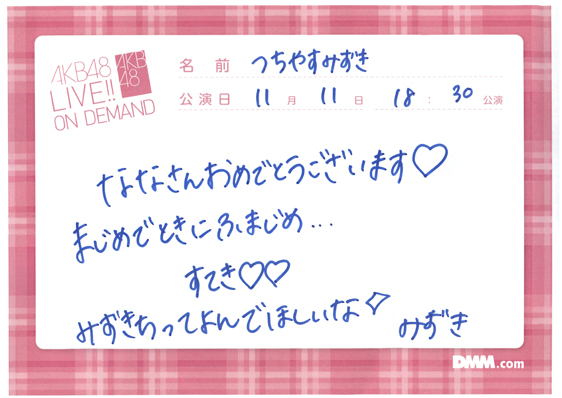 AKB48
LIVE!!
ON DEMAND
AKB
48
名前 つちやすみずき
公演日 11月 11日 18:30公演
ななさんおめでとうございます♡
まじめでときにふまじめ...
すてき♡♡
みずきちってよんでほしいな✧
みずき
DMM.com